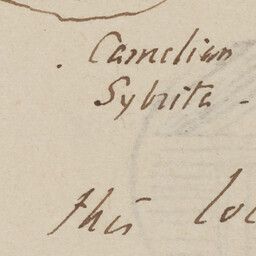 . Carnelian
Sybrita -
this loc